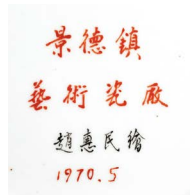 景德鎮
藝術瓷厰
趙惠民繪
1970.5